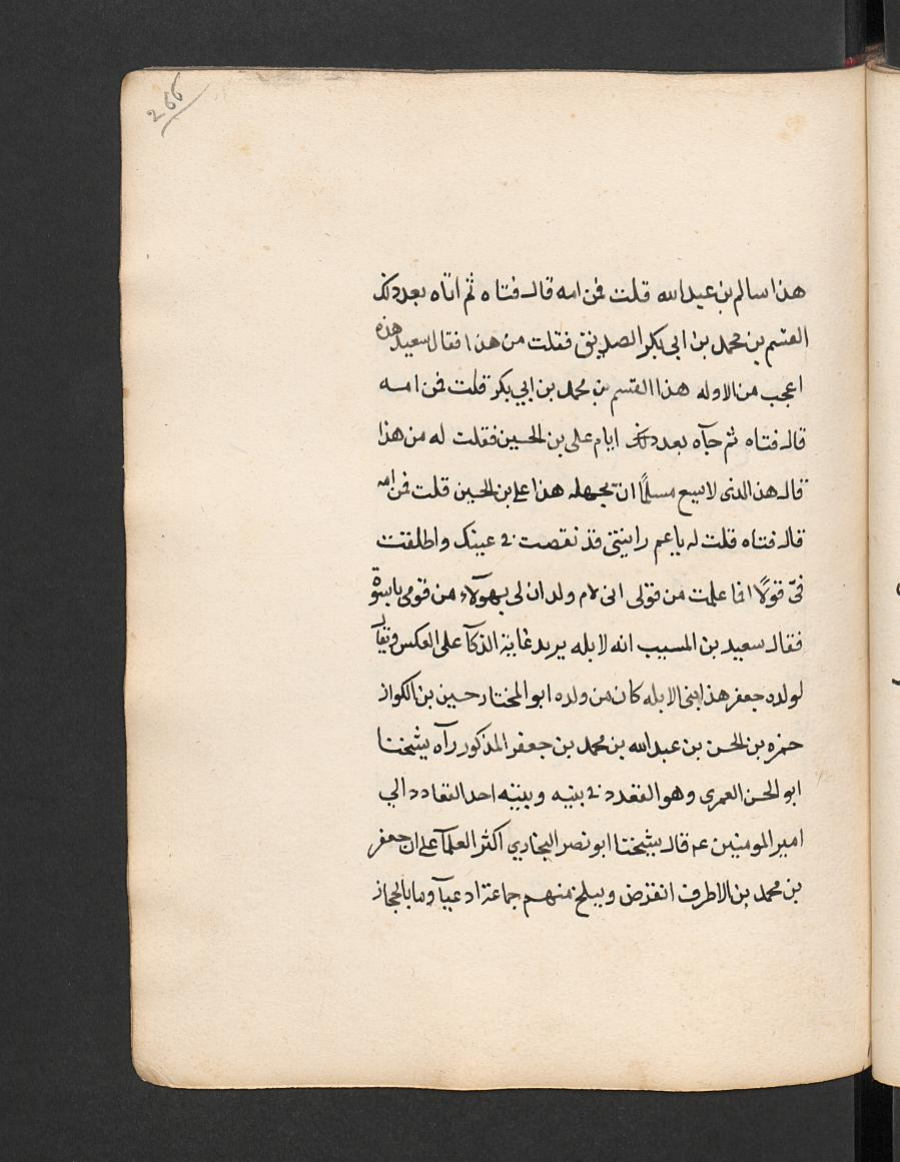 266
هذا سالم بن عبد الله قلت فمن امه قال فتاه ثم اتاه بعد ذلك
القسم بن محمد بن ابي بكر الصديق فقلت من هذا فقال سعيد هذه
اعجب من الاوله هذا القسم بن محمد بن ابي بكر قلت فمن امه
قال فتاه ثم جآه بعد ذلك ايام على بن الحسين فقلت له من هذا
قال هذا الذى لا يسع مسلمًا ان يجهله هذا على بن الحسين قلت فمن امه
قال فتاه قلت له يا عم رايتنى قد نقصت فى عينك واطلقت
فىّ قولًا اما علمت من قولى انى لام ولد ان لى بهولآء من قومى باسوة
فقال سعيد بن المسيب انه لابله يريد غاية الذكآ على العكس ويقال
لولده جعفر هذا بنى الابله كان من ولده ابو المختار حسين بن الكواز
حمزه بن الحسن بن عبد الله بن محمد بن جعفر المذكور رآه شيخنا
ابو الحسن العمرى وهو القعدد فى بنيه وبيته احد القعادد الي
امير المومنين عم قال شيخنا ابو نصر البخاري اكثر العلمآ على ان جعفر
بن محمد بن الاطرف انقرض وببلخ منهم جماعة ادعيآ وما بالحجاز